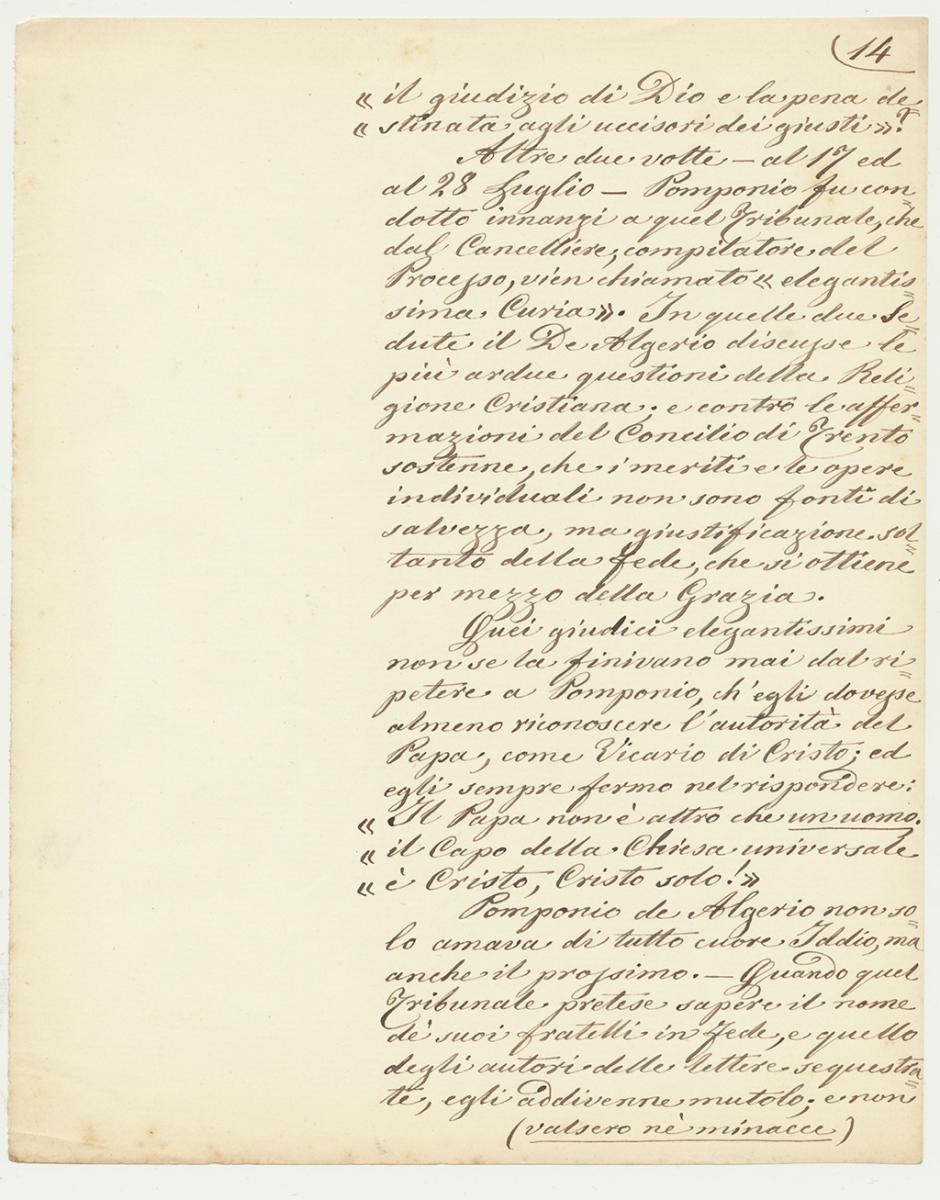 14
« il giudizio di Dio e la pena de=
« stinata agli uccisori dei giusti »?
Altre due volte — al 17 ed
al 28 Luglio — Pomponio fu con=
dotto innanzi a quel Tribunale, che
dal Cancelliere, compilatore del
Processo, vien chiamato « elegantis=
sima Curia ». In quelle due Se=
dute il De Algerio discusse le
più ardue questioni della Reli=
gione Cristiana; e contro le affer=
mazioni del Concilio di Trento
sostenne, che i meriti e le opere
individuali non sono fonti di
salvezza, ma giustificazione sol=
tanto della Fede, che si ottiene
per mezzo della Grazia.
Quei giudici elegantissimi
non se la finivano mai dal ri=
petere a Pomponio, ch'egli dovesse
almeno riconoscere l'autorità del
Papa, come Vicario di Cristo; ed
egli sempre fermo nel rispondere:
« Il Papa non è altro che un uomo.
« il Capo della Chiesa universale
« è Cristo, Cristo solo! »
Pomponio de Algerio non so=
lo amava di tutto cuore Iddio, ma
anche il prossimo. — Quando quel
Tribunale pretese sapere il nome
dè suoi fratelli in Fede, e quello
degli autori delle lettere sequestra=
te, egli addivenne mutolo; e non
(valsero nè minacce)